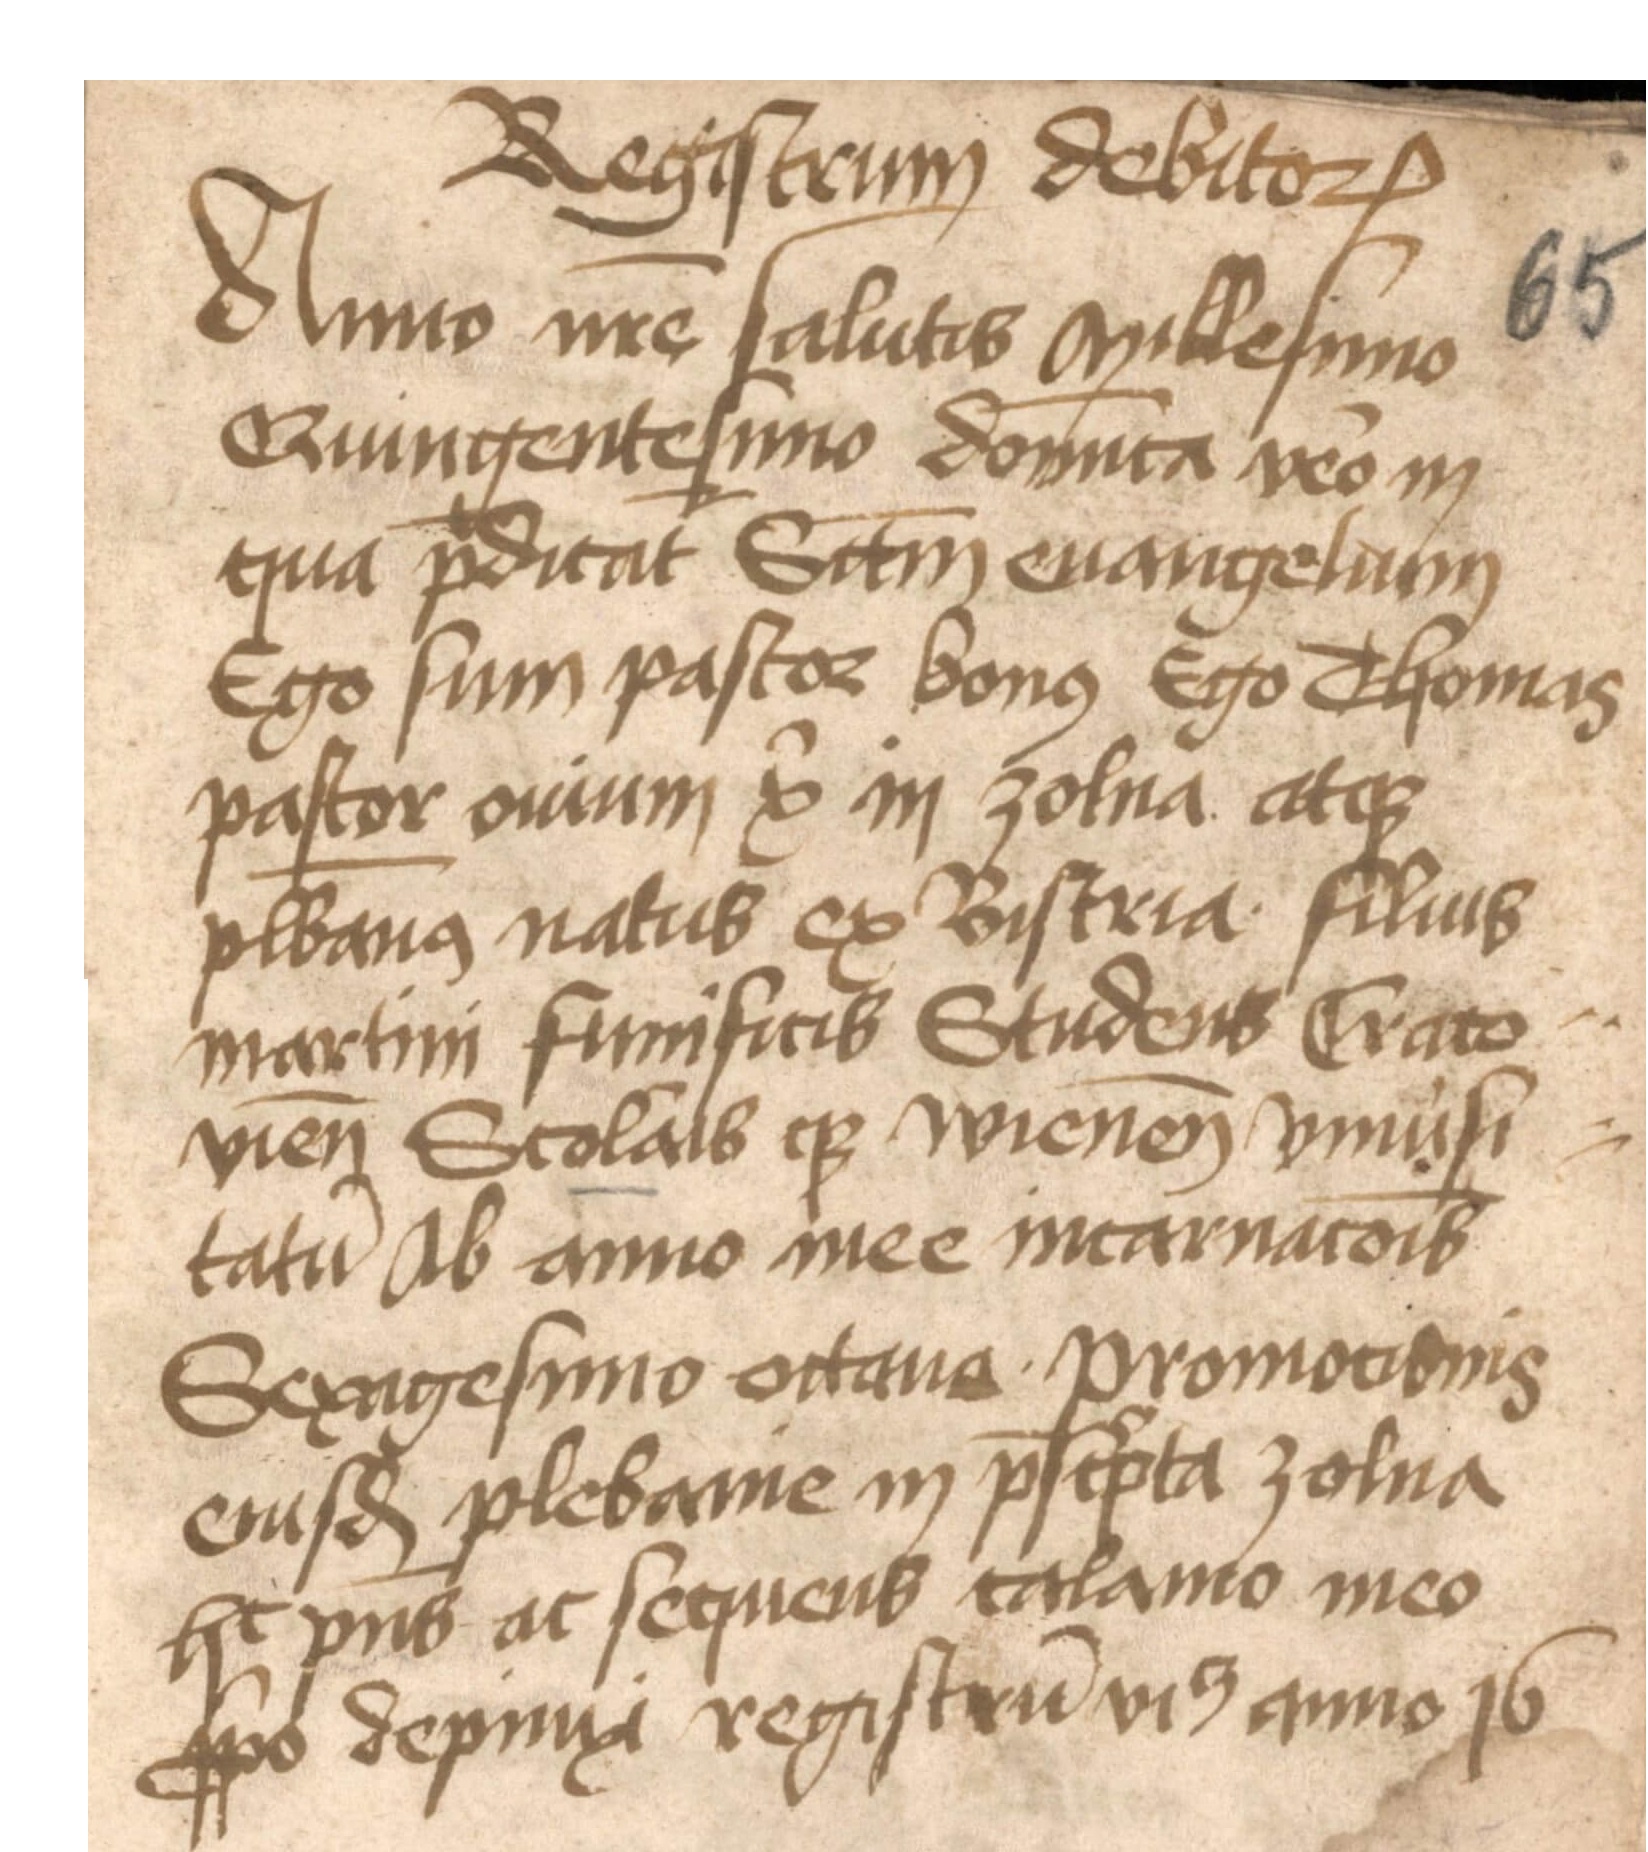 Registrum debitoꝝ
65
Anno nr̄e salutis Millesimo
Quingentesimo domīca vēo in
qua p̄dicat᷑ Sctm̄ euangelium
Ego sum pastor bonꝰ Ego Thomas
pastor ouium xͥ in zolna. atqꝫ
plb̄anꝰ natus ex Bistria. filius
martini funificis Studens Craco
vien̄ Scolaīs qꝫ wienen̄ vniūsi
tatū Ab anno mee incarnacōis
Sexagesimo octauo. Promocionis
eiusdē plebanie in p̄scp̄ta zolna
hͨ pn̄s ac sequens calamo meo
ꝓpͦo depinxi registrū viꝫ anno 16